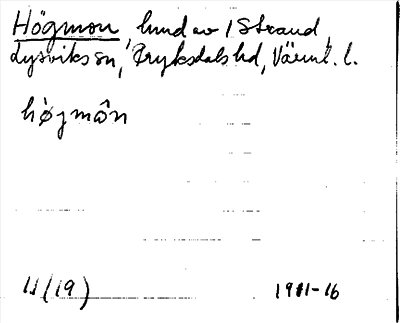 Högmon, hmd av 1 Strand,
Lysviks sn, Fryksdals hd, Värml. l.
högmôn
11(19)
1911-16